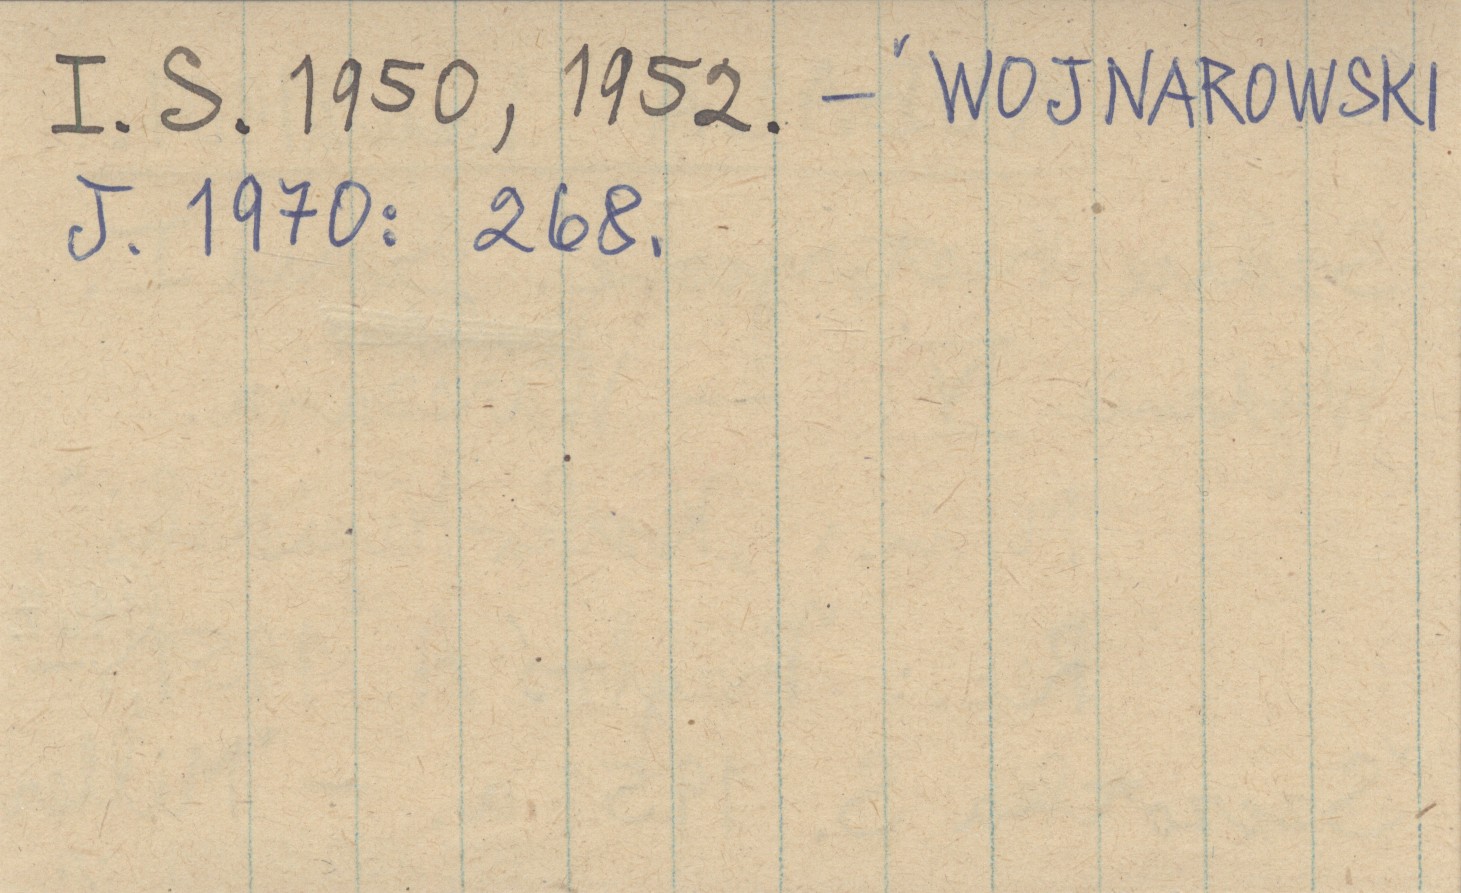 I. S. 1950, 1952. – WOJNAROWSKI
J. 1970: 268.